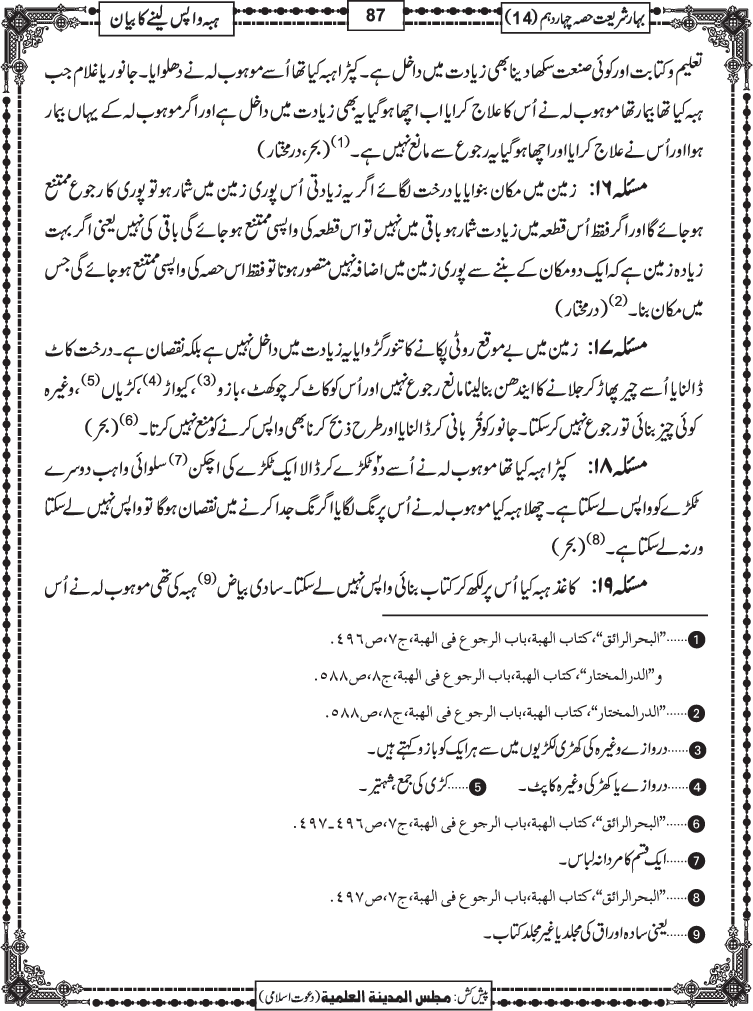 بہارِ شریعت حصہ چہاردہم (14)
87
ہبہ واپس لینے کا بیان
تعلیم و کتابت اور کوئی صنعت سکھا دینا بھی زیادت میں داخل ہے۔ کپڑا ہبہ کیا تھا اُسے موہوب لہ نے دھلوایا۔ جانور یا غلام جب
ہبہ کیا تھا بیمار تھا موہوب لہ نے اُس کا علاج کرایا اب اچھا ہوگیا یہ بھی زیادت میں داخل ہے اور اگر موہوب لہ کے یہاں بیمار
ہوا اور اُس نے علاج کرایا اور اچھا ہوگیا یہ رجوع سے مانع نہیں ہے۔(1) (بحر، درمختار)
مسئلہ ۱۶: زمین میں مکان بنوایا یا درخت لگائے اگر یہ زیادتی اُس پوری زمین میں شمار ہو تو پوری کا رجوع ممتنع
ہوجائے گا اور اگر فقط اُس قطعہ میں زیادت شمار ہو باقی میں نہیں تو اس قطعہ کی واپسی ممتنع ہوجائے گی باقی کی نہیں یعنی اگر بہت
زیادہ زمین ہے کہ ایک دو مکان کے بننے سے پوری زمین میں اضافہ نہیں متصور ہوتا تو فقط اس حصہ کی واپسی ممتنع ہوجائے گی جس
میں مکان بنا۔(2) (درمختار)
مسئلہ ۱۷: زمین میں بے موقع روٹی پکانے کا تنور گڑوایا یہ زیادت میں داخل نہیں ہے بلکہ نقصان ہے۔ درخت کاٹ
ڈالنا یا اُسے چیر پھاڑ کر جلانے کا ایندھن بنا لینا مانع رجوع نہیں اور اُس کو کاٹ کر چوکھٹ، بازو(3)، کیواڑ(4)، کڑیاں(5)، وغیرہ
کوئی چیز بنائی تو رجوع نہیں کرسکتا۔ جانور کو قُربانی کر ڈالنا یا اور طرح ذبح کرنا بھی واپس کرنے کو منع نہیں کرتا۔(6) (بحر)
مسئلہ ۱۸: کپڑا ہبہ کیا تھا موہوب لہ نے اُسے دو۲ ٹکڑے کر ڈالا ایک ٹکڑے کی اچکن(7) سلوائی واہب دوسرے
ٹکڑے کو واپس لے سکتا ہے۔ چھلا ہبہ کیا موہوب لہ نے اُس پر نگ لگایا اگر نگ جدا کرنے میں نقصان ہوگا تو واپس نہیں لے سکتا
ورنہ لے سکتا ہے۔(8) (بحر)
مسئلہ ۱۹: کاغذ ہبہ کیا اُس پر لکھ کر کتاب بنائی واپس نہیں لے سکتا۔ سادی بیاض(9) ہبہ کی تھی موہوب لہ نے اُس
1......”البحرالرائق“، كتاب الهبة، باب الرجوع في الهبة، ج٧، ص٤٩٦.
و”الدرالمختار“، كتاب الهبة، باب الرجوع في الهبة، ج٨، ص٥٨٨.
2......”الدرالمختار“، كتاب الهبة، باب الرجوع في الهبة، ج٨، ص٥٨٨.
3......دروازے وغیرہ کی کھڑی لکڑیوں میں سے ہر ایک کو بازو کہتے ہیں۔
4......دروازے یا کھڑکی وغیرہ کا پٹ۔ 5......کڑی کی جمع، شہتیر۔
6......”البحرالرائق“، كتاب الهبة، باب الرجوع في الهبة، ج٧، ص٤٩٦-٤٩٧.
7......ایک قسم کا مردانہ لباس۔
8......”البحرالرائق“، كتاب الهبة، باب الرجوع في الهبة، ج٧، ص٤٩٧.
9......یعنی سادہ اوراق کی مجلد یا غیر مجلد کتاب۔
پیش کش: مجلس المدینة العلمیة (دعوتِ اسلامی)